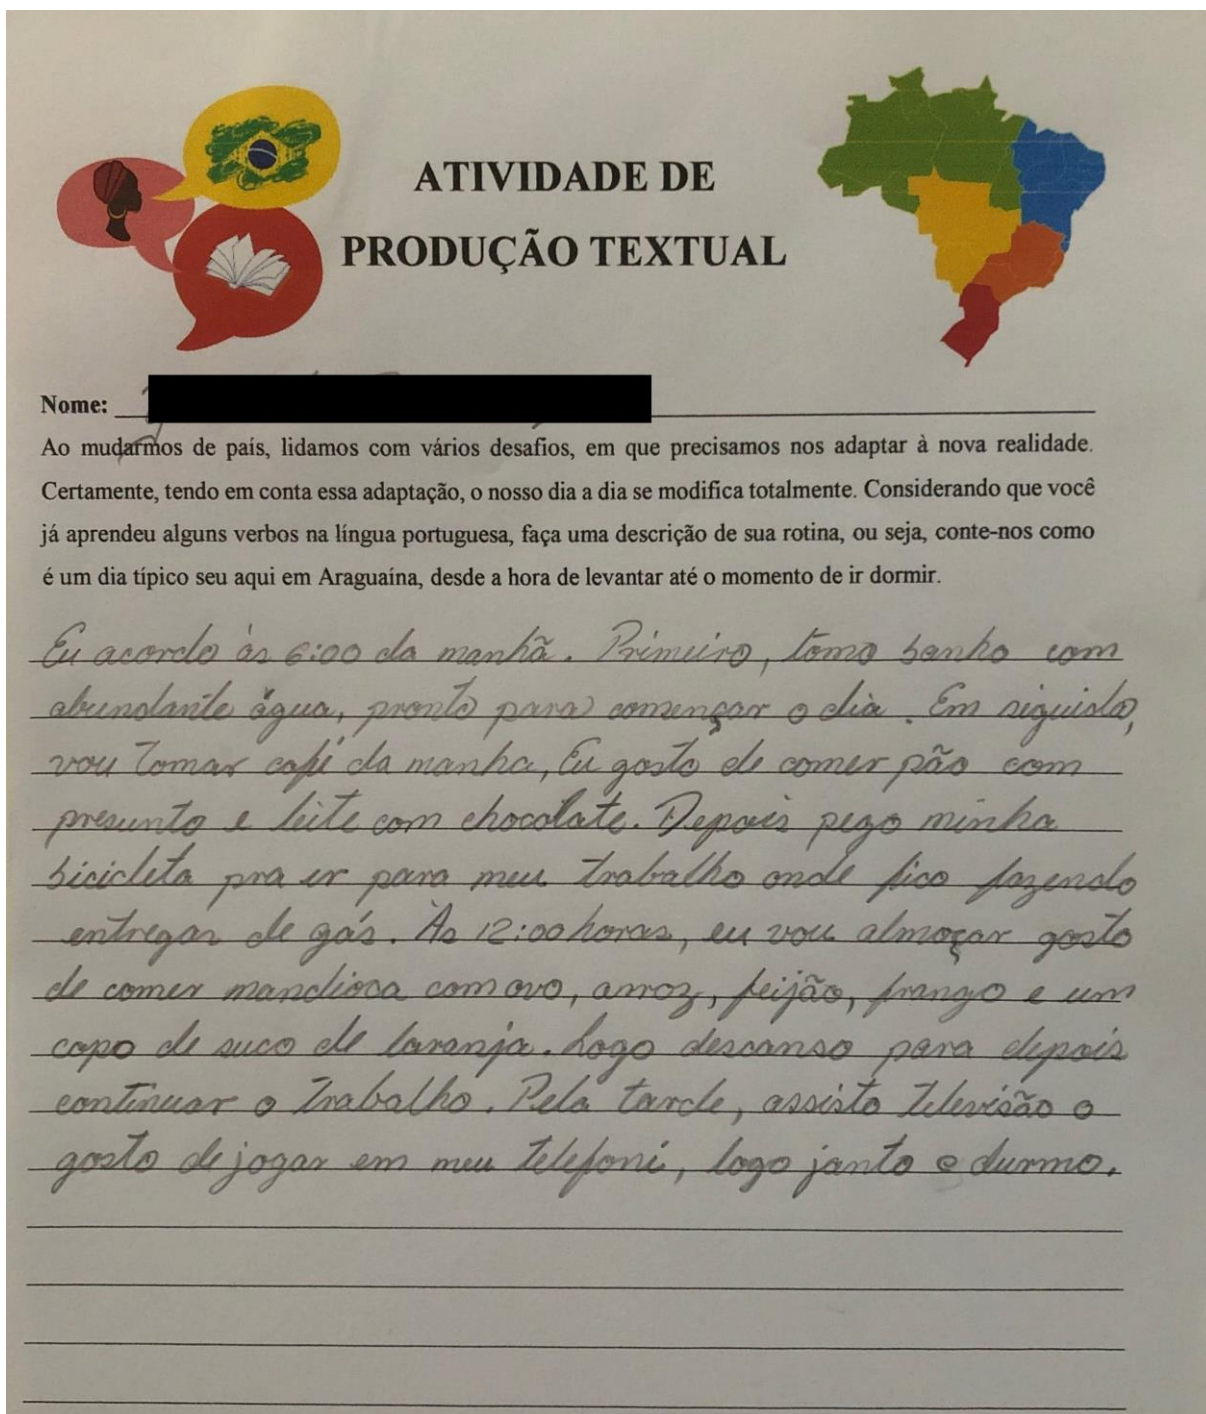 ATIVIDADE DE
PRODUÇÃO TEXTUAL
Nome:
Ao mudarmos de país, lidamos com vários desafios, em que precisamos nos adaptar à nova realidade.
Certamente, tendo em conta essa adaptação, o nosso dia a dia se modifica totalmente. Considerando que você
já aprendeu alguns verbos na língua portuguesa, faça uma descrição de sua rotina, ou seja, conte-nos como
é um dia típico seu aqui em Araguaína, desde a hora de levantar até o momento de ir dormir.
Eu acordo às 6:00 da manhã. Primeiro, tomo banho com
abundante água, pronto para començar o dia. Em siguida,
vou tomar café da manha, Eu gosto de comer pão com
presunto e leite com chocolate. Depois pego minha
bicicleta pra ir para meu trabalho onde fico fazendo
entregas de gás. Às 12:00 horas, eu vou almoçar gosto
de comer mandioca com ovo, arroz, feijão, frango e um
copo de suco de laranja. Logo descanso para depois
continuar o trabalho. Pela tarde, assisto televisão o
gosto de jogar em meu telefone, logo janto e durmo.